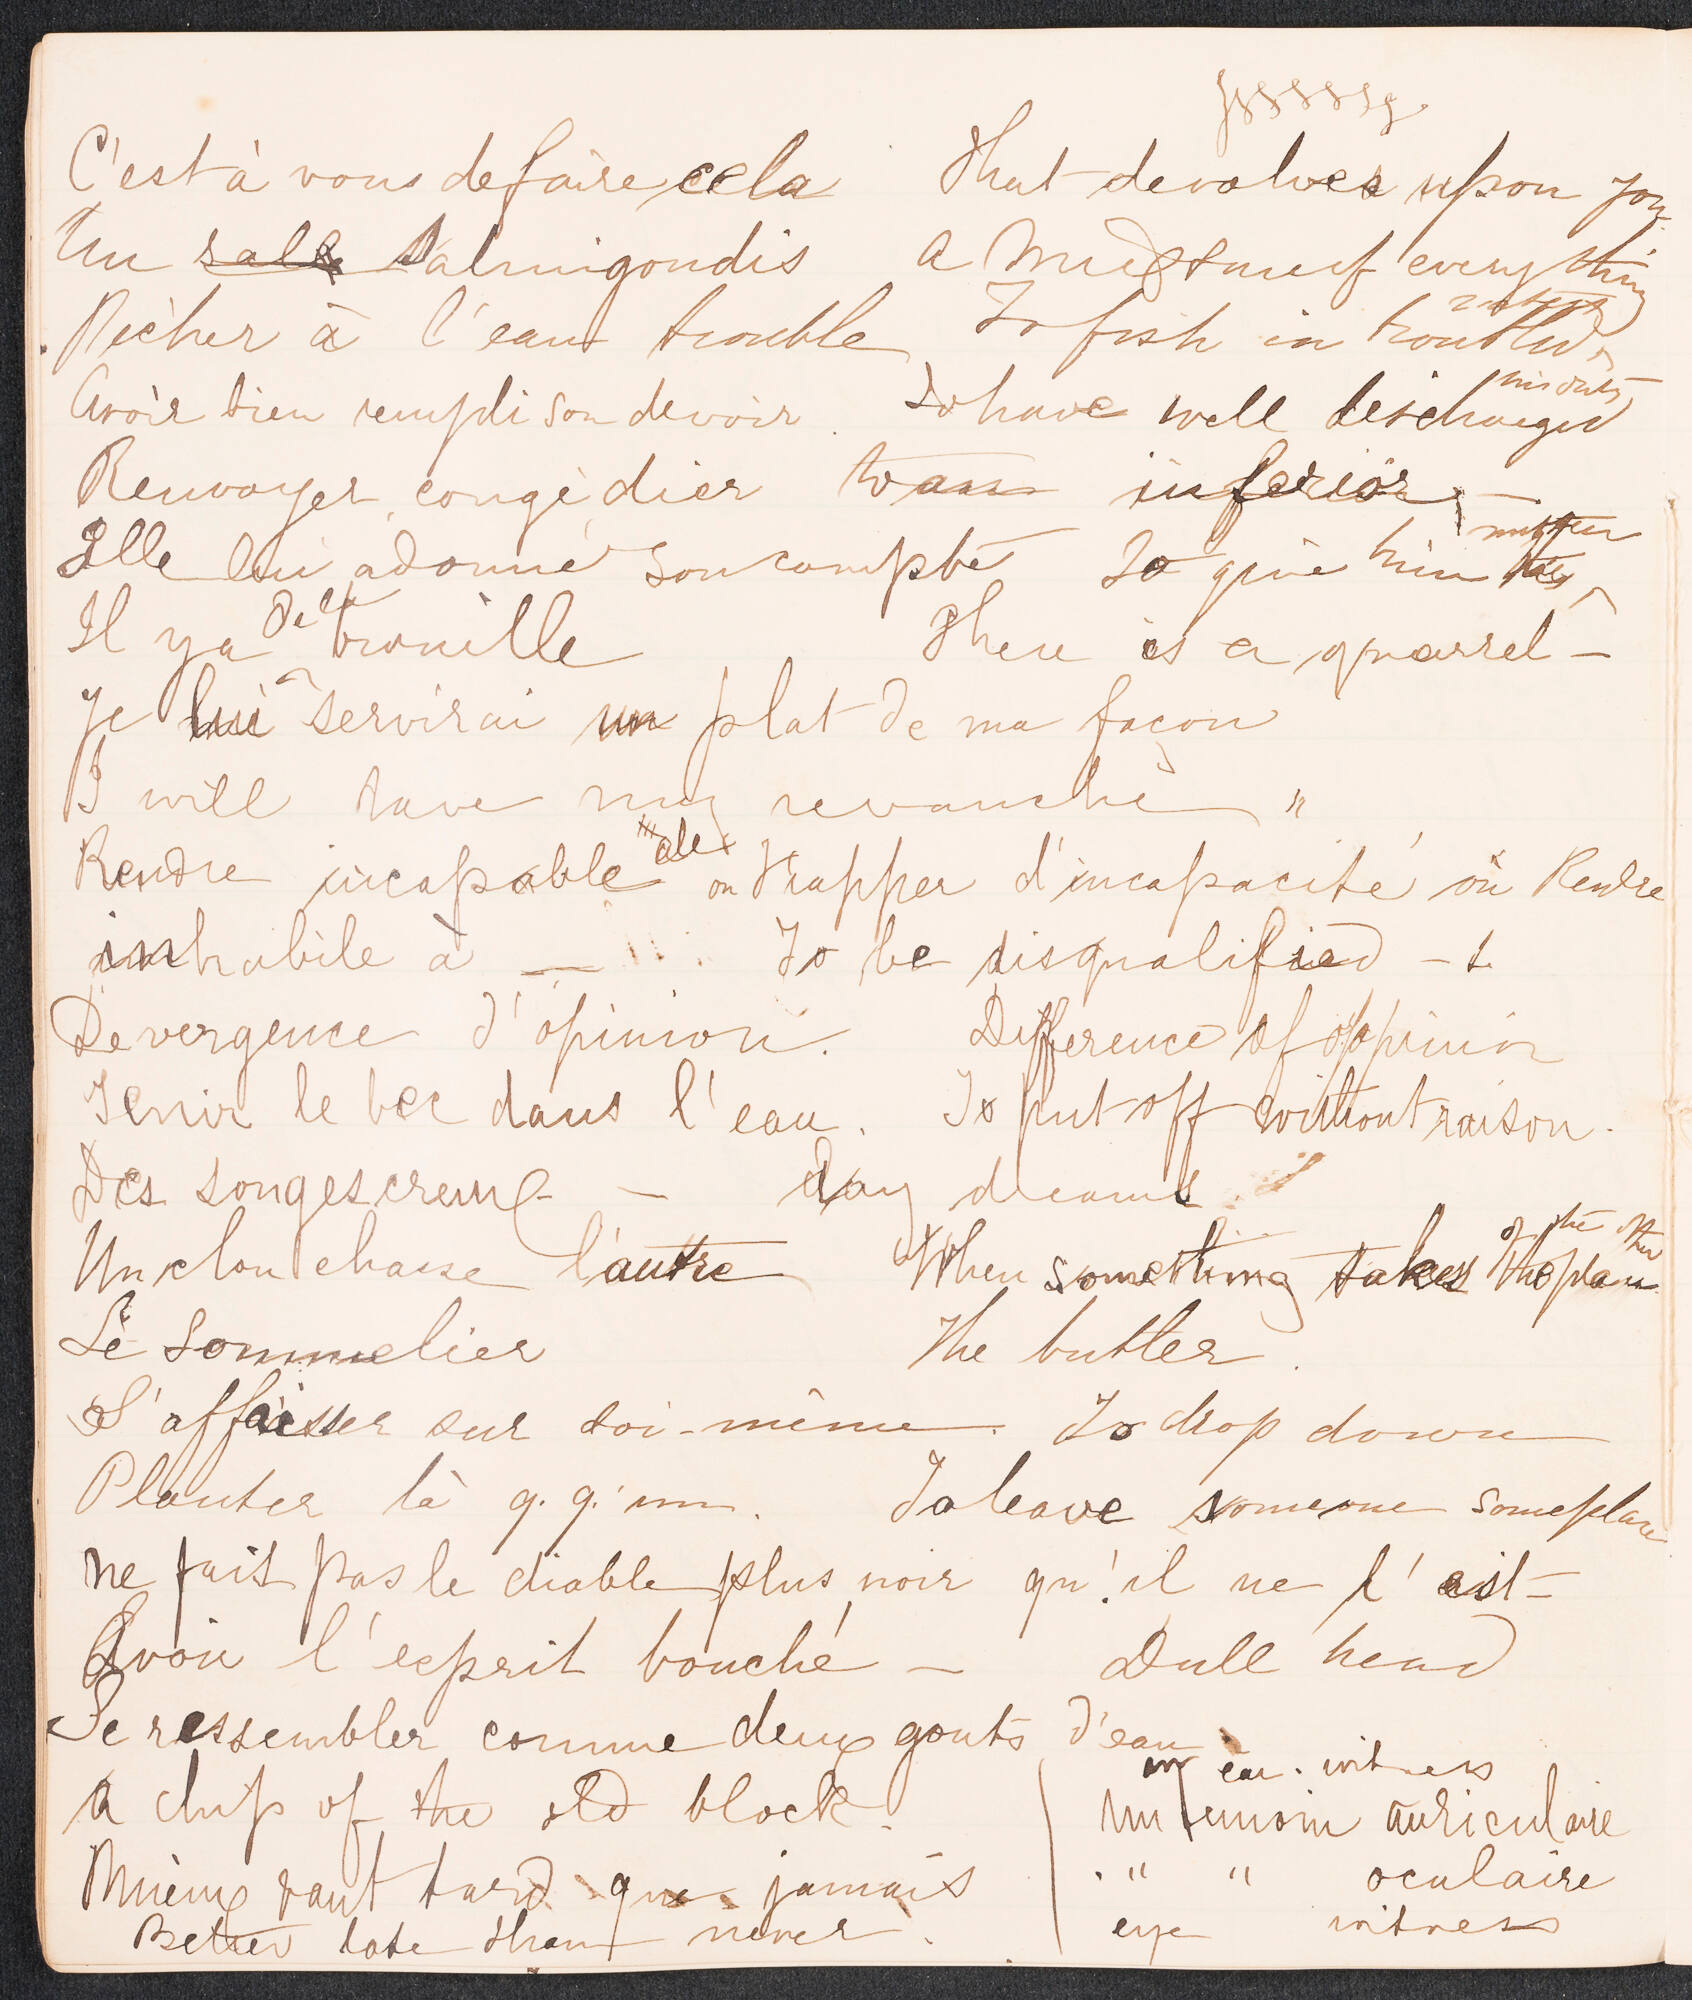 C'est à vous de faire cela That devolves upon you
Un sale Salmigondis a Mixture of everything
Pêcher à l'eau trouble To fish in troubled waters
Avoir bien rempli son devoir. To have well discharged his duty
Renvoyer, congédier to an inferior —
Elle lui a donné son compte To give him his mitten
Il y a de la brouille There is a quarrel —
Je lui servirai un plat de ma facon
I will have my revanche "
Rendre incapable de ou Frapper d'incapacité ou Rendre
inhabile à — To be disqualified —
Devergence d'opinion. Difference of oppinion
Tenir le bec dans l'eau. To put off without raison.
Des songes creux — day dreams
Un clou chasse l'autre When something takes the place of the other
Le Sommelier The butler.
S'affaisser sur soi-même. To drop down
Planter là q.q'un. To leave someone someplace
ne fait pas le diable plus noir qu'il ne l'est —
Avoir l'esprit bouché — Dull head
Se ressembler comme deux gouts d'eau
a chip of the old block.
ear. witness
un temoin auriculaire
" " oculaire
eye witness
Mieux vaut tard que jamais
Better late than never.